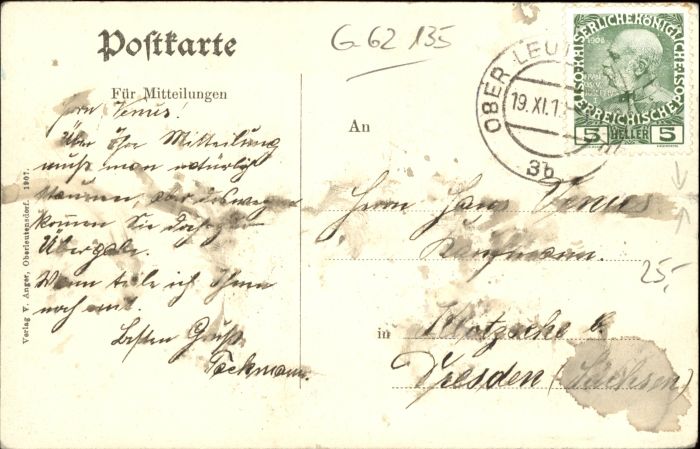 Postkarte
G. 62 135
Für Mitteilungen
Herrn Venus!
Über Ihre Mitteilung
muß man natürlich
staunen, aber deswegen
kommen Sie
Übergabe.
Wann teile ich Ihnen
noch mit.
Besten Gruß
An
Herrn Hans Venus
Kaufmann.
in Klotzsche b.
Dresden (Sachsen)
25.-
OBER LEUT
19.XI.1
3b
KAISERLICHEKÖNIGLICHE
ÖSTERREICHISCHE POST
1908
5 HELLER 5
Verlag V. Anger, Oberleutensdorf. 1907.